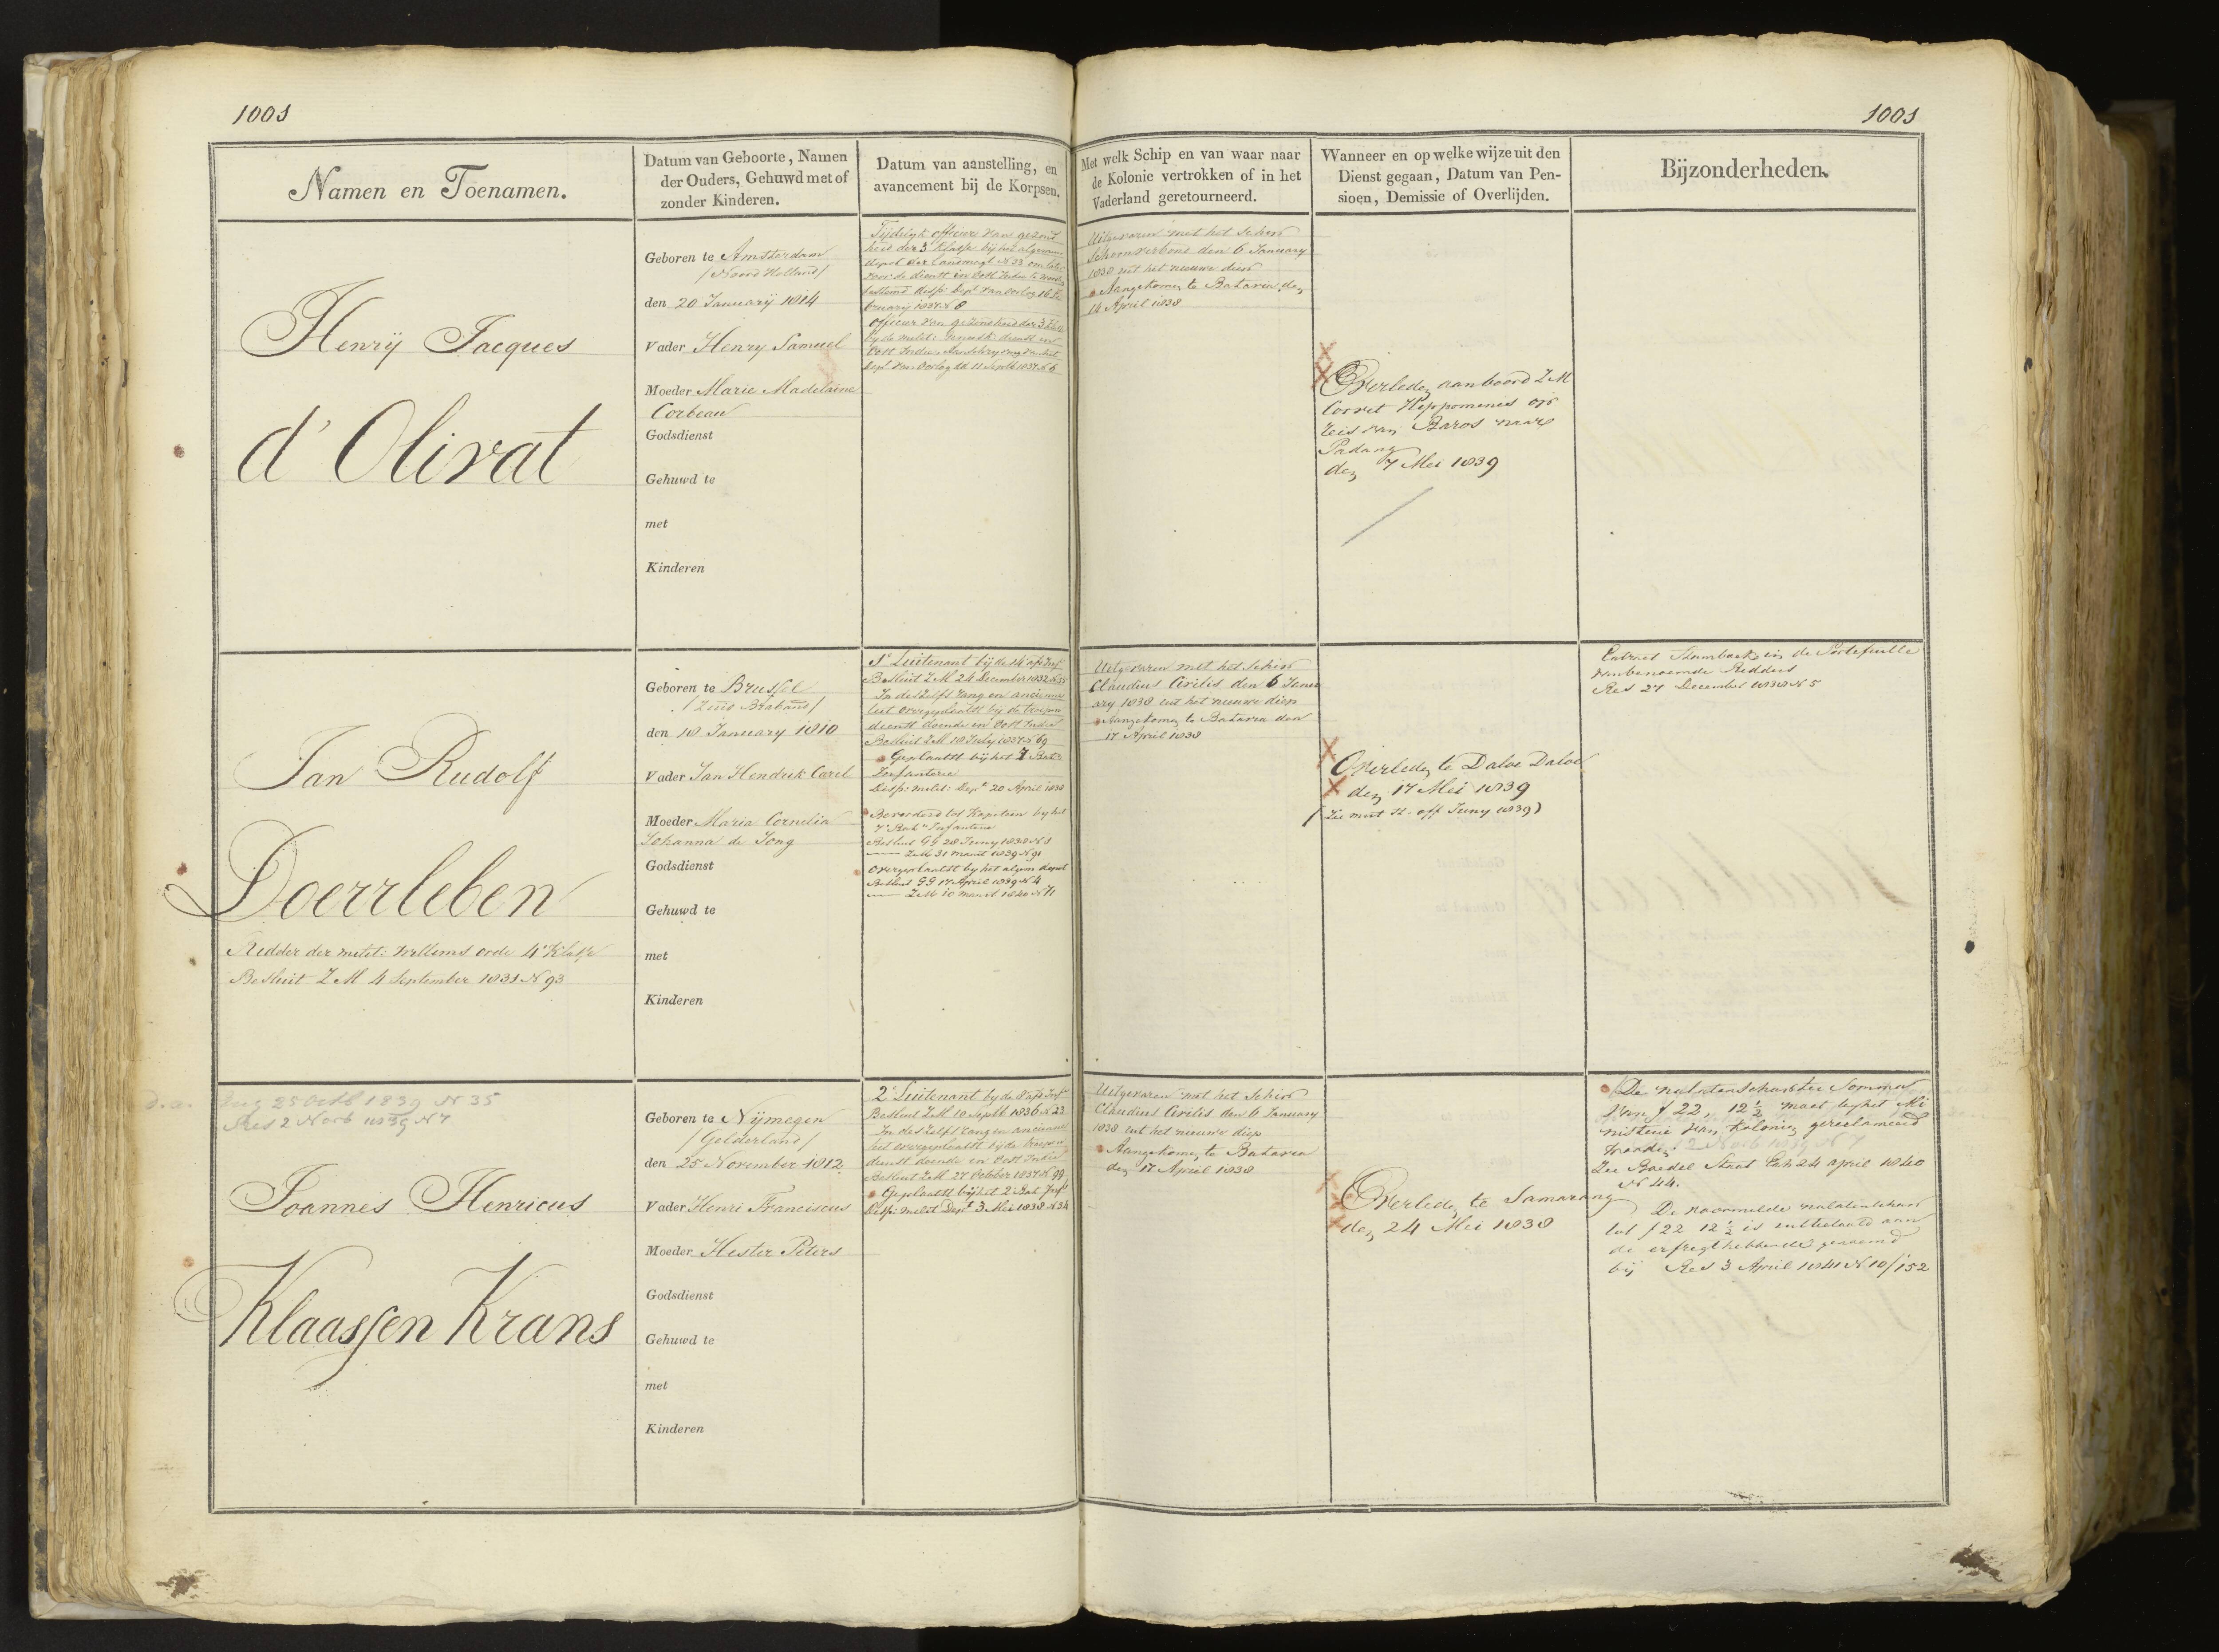 1001
1001
Namen en Toenamen.
Datum van Geboorte, Namen
der Ouders, Gehuwd met of
zonder Kinderen.
Datum van aanstelling, en
avancement bij de Korpsen.
Met welk Schip en van waar naar
de Kolonie vertrokken of in het
Vaderland geretourneerd.
Wanneer en op welke wijze uit den
Dienst gegaan, Datum van Pen-
sioen, Demissie of Overlijden.
Bijzonderheden.
Henrÿ Jacques
d'Olivat
Geboren te Amsterdam
/Noord Holland/
den 20 Januarÿ 1814
Vader Henry Samuel
Moeder Marie Madelaine
Corbeau
Godsdienst
Gehuwd te
met
Kinderen
Tijdelijk officier van gezond
heid der 3e Klasse bij het algemeen
depot der Landmagt No 33 om later
voor de dienst in Oost Indie te worden
bestemd Disp: Dept van Oorlog 16 Fe
bruarij 1837 No 8
Officier van gezondheid der 3e Klasse
by de milit: geneesk: dienst in
Oost Indien Aanschryving van het
Dept van Oorlog dd 11 Septb 1837 No 6
Uitgevaren met het schip
Schoonverbond den 6 January
1838 uit het nieuwe diep
Aangekomen te Batavia den
14 April 1838
Overleden aan boord ZM
Corvet Hippomenes op
reis van Baros naar
Padang
den 7 Mei 1839
Jan Rudolf
Doerrleben
Ridder der milit: Willems orde 4e Klasse
Besluit ZM 4 September 1831 No 93
Geboren te Brussel
/Zuid Braband/
den 18 January 1810
Vader Jan Hendrik Carel
Moeder Maria Cornelia
Johanna de Jong
Godsdienst
Gehuwd te
met
Kinderen
1e Luitenant bij de 14e afd Inf
Besluit ZM 24 December 1832 No 35
In deszelfs rang en ancienne
teit overgeplaatst bij de troepen
dienst doende in Oost Indie
Besluit ZM 18 July 1837 No 69
Geplaatst bij het 7 Bat:
Infanterie
Disp: milit: Dept 20 April 1838
Bevorderd tot Kapitein by het
7e Bat:n Infanterie
Besluit GG 28 Juny 1838 No 1
ZM 31 Maart 1839 No 91
Overgeplaatst by het algem depot
Besluit GG 17 April 1839 No 4
ZM 10 Maart 1840 No 71
Uitgevaren met het schip
Claudius Civilis den 6 Janu
ary 1838 uit het nieuwe diep
Aangekomen te Batavia den
17 April 1838
Overleden te Daloe Daloe
den 17 Mei 1839
(Zie mut st. off Juny 1839)
in de Portefeuille
Ridders
Res 27 December 1838 No 5
25 Octb 1839 No 35
Res 2 Novb 1839 No 7
Joannes Henricus
Klaassen Krans
Geboren te Nÿmegen
/Gelderland/
den 25 November 1812
Vader Henri Franciscus
Moeder Hester Peters
Godsdienst
Gehuwd te
met
Kinderen
2e Luitenant by de 8 afd Inf
Besluit ZM 10 Septb 1836 No 23
In deszelfs rang en ancienni
teit overgeplaatst bij de troepen
dienst doende in Oost Indie
Besluit ZM 27 October 1837 No 99
Geplaatst bij het 2e Bat Inf
Disp: milit Dept 3 Mei 1838 No 34
Uitgevaren met het schip
Claudius Civilis den 6 January
1838 uit het nieuwe diep
Aangekomen te Batavia
den 17 April 1838
Overleden te Samarang
den 24 Mei 1838
De nalatenschap ter Somma
van f 22, 12½ moet by het Mi
nisterie van Kolonien gereclameerd
worden. 2 Novb 1839 No 7
Zie Boedel Staat 24 april 1840
No 44.
De voormelde nalatenschap
tot f 22 12½ is uitbetaald aan
de erfregthebbende genoemd
bij Res 3 April 1841 No 10/152